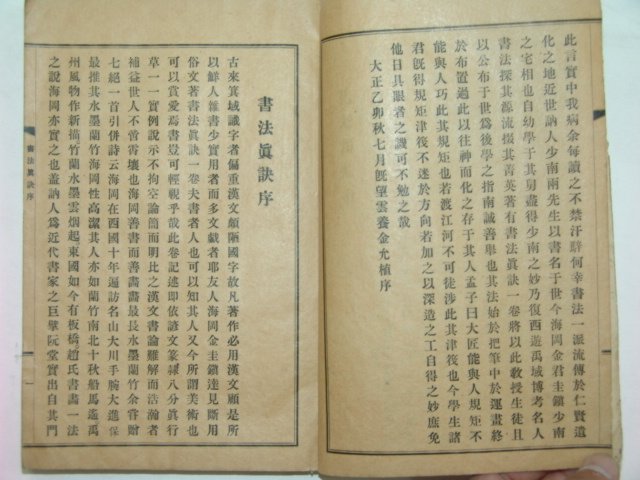 此言實中我病余每讀之不禁汗騂何幸書法一派流傳於仁賢遺
化之地近世訥人少南兩先生以書名于世今海岡金君圭鎭少南
之宅相也自幼學于其舅盡得少南之妙乃復西遊禹域博考名人
書法探其源流掇其菁英著有書法眞訣一卷將以此敎授生徒且
以公布于世爲後學之指南誠善擧也其法始於把筆中於運畫終
於布置過此以往神而化之存于其人孟子曰大匠能與人規矩不
能與人巧此其規矩也若渡江河不可徒涉此其津筏也今學生諸
君旣得規矩津筏不迷於方向若加之以深造之工自得之妙庶免
他日具眼者之譏可不勉之哉
大正乙卯秋七月旣望雲養金允植序
書法眞訣序
古來箕域識字者偏重漢文頗陋國字故凡著作必用漢文顧是所
以鮮人雜書少實用者而多文戱者耶友人海岡金圭鎭達見斷用
俗文著書法眞訣一卷夫書者人也可以知其人又今所謂美術也
可以賞愛焉書豈可輕視乎哉此卷記述即依諺文篆隷八分眞行
草一一實例說示不拘空論簡而明比之漢文書論難解而浩瀚者
補益世人不啻霄壤也海岡善書而善畵畵最長水墨蘭竹余嘗贈
七絕一首引併詩云海岡在西國十年遍訪名山大川手腕大進
最推其水墨蘭竹海岡性高潔其人亦如蘭竹南北十秋船馬遙禹
州風物作新描竹蘭水墨雲烟起東國如今有板橋趙氏書畵一法
之說海岡亦實之也蓋訥人爲近代書家之巨擘阮堂實出自其門
書法眞訣序
一